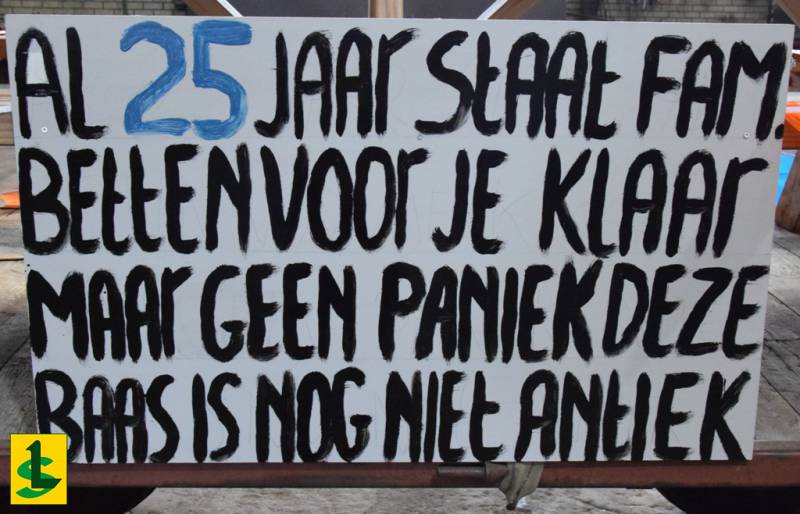 AL 25 JAAr StAAt FAM.
BEttEN VOOr JE KLAAr
MAAr GEEN PANIEK DEZE
BAAS IS NOG NIEt ANtIEK